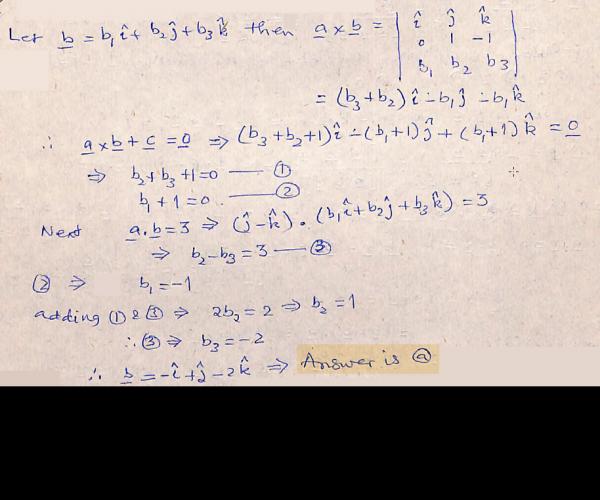 Let b = b₁î + b₂ĵ + b₃k̂ then a × b = | î ĵ k̂ |
| 0 1 −1 |
| b₁ b₂ b₃ |
= (b₃+b₂)î − b₁ĵ − b₁k̂
∴ a×b + c = 0 ⇒ (b₃+b₂+1)î − (b₁+1)ĵ + (b₁+1)k̂ = 0
⇒ b₂+b₃+1=0 — ①
b₁+1=0. — ②
Next a.b=3 ⇒ (ĵ−k̂).(b₁î+b₂ĵ+b₃k̂)=3
⇒ b₂−b₃=3 — ③
② ⇒ b₁=−1
adding ① & ③ ⇒ 2b₂=2 ⇒ b₂=1
∴ ③ ⇒ b₃=−2
∴ b=−î+ĵ−2k̂ ⇒ Answer is ⓐ